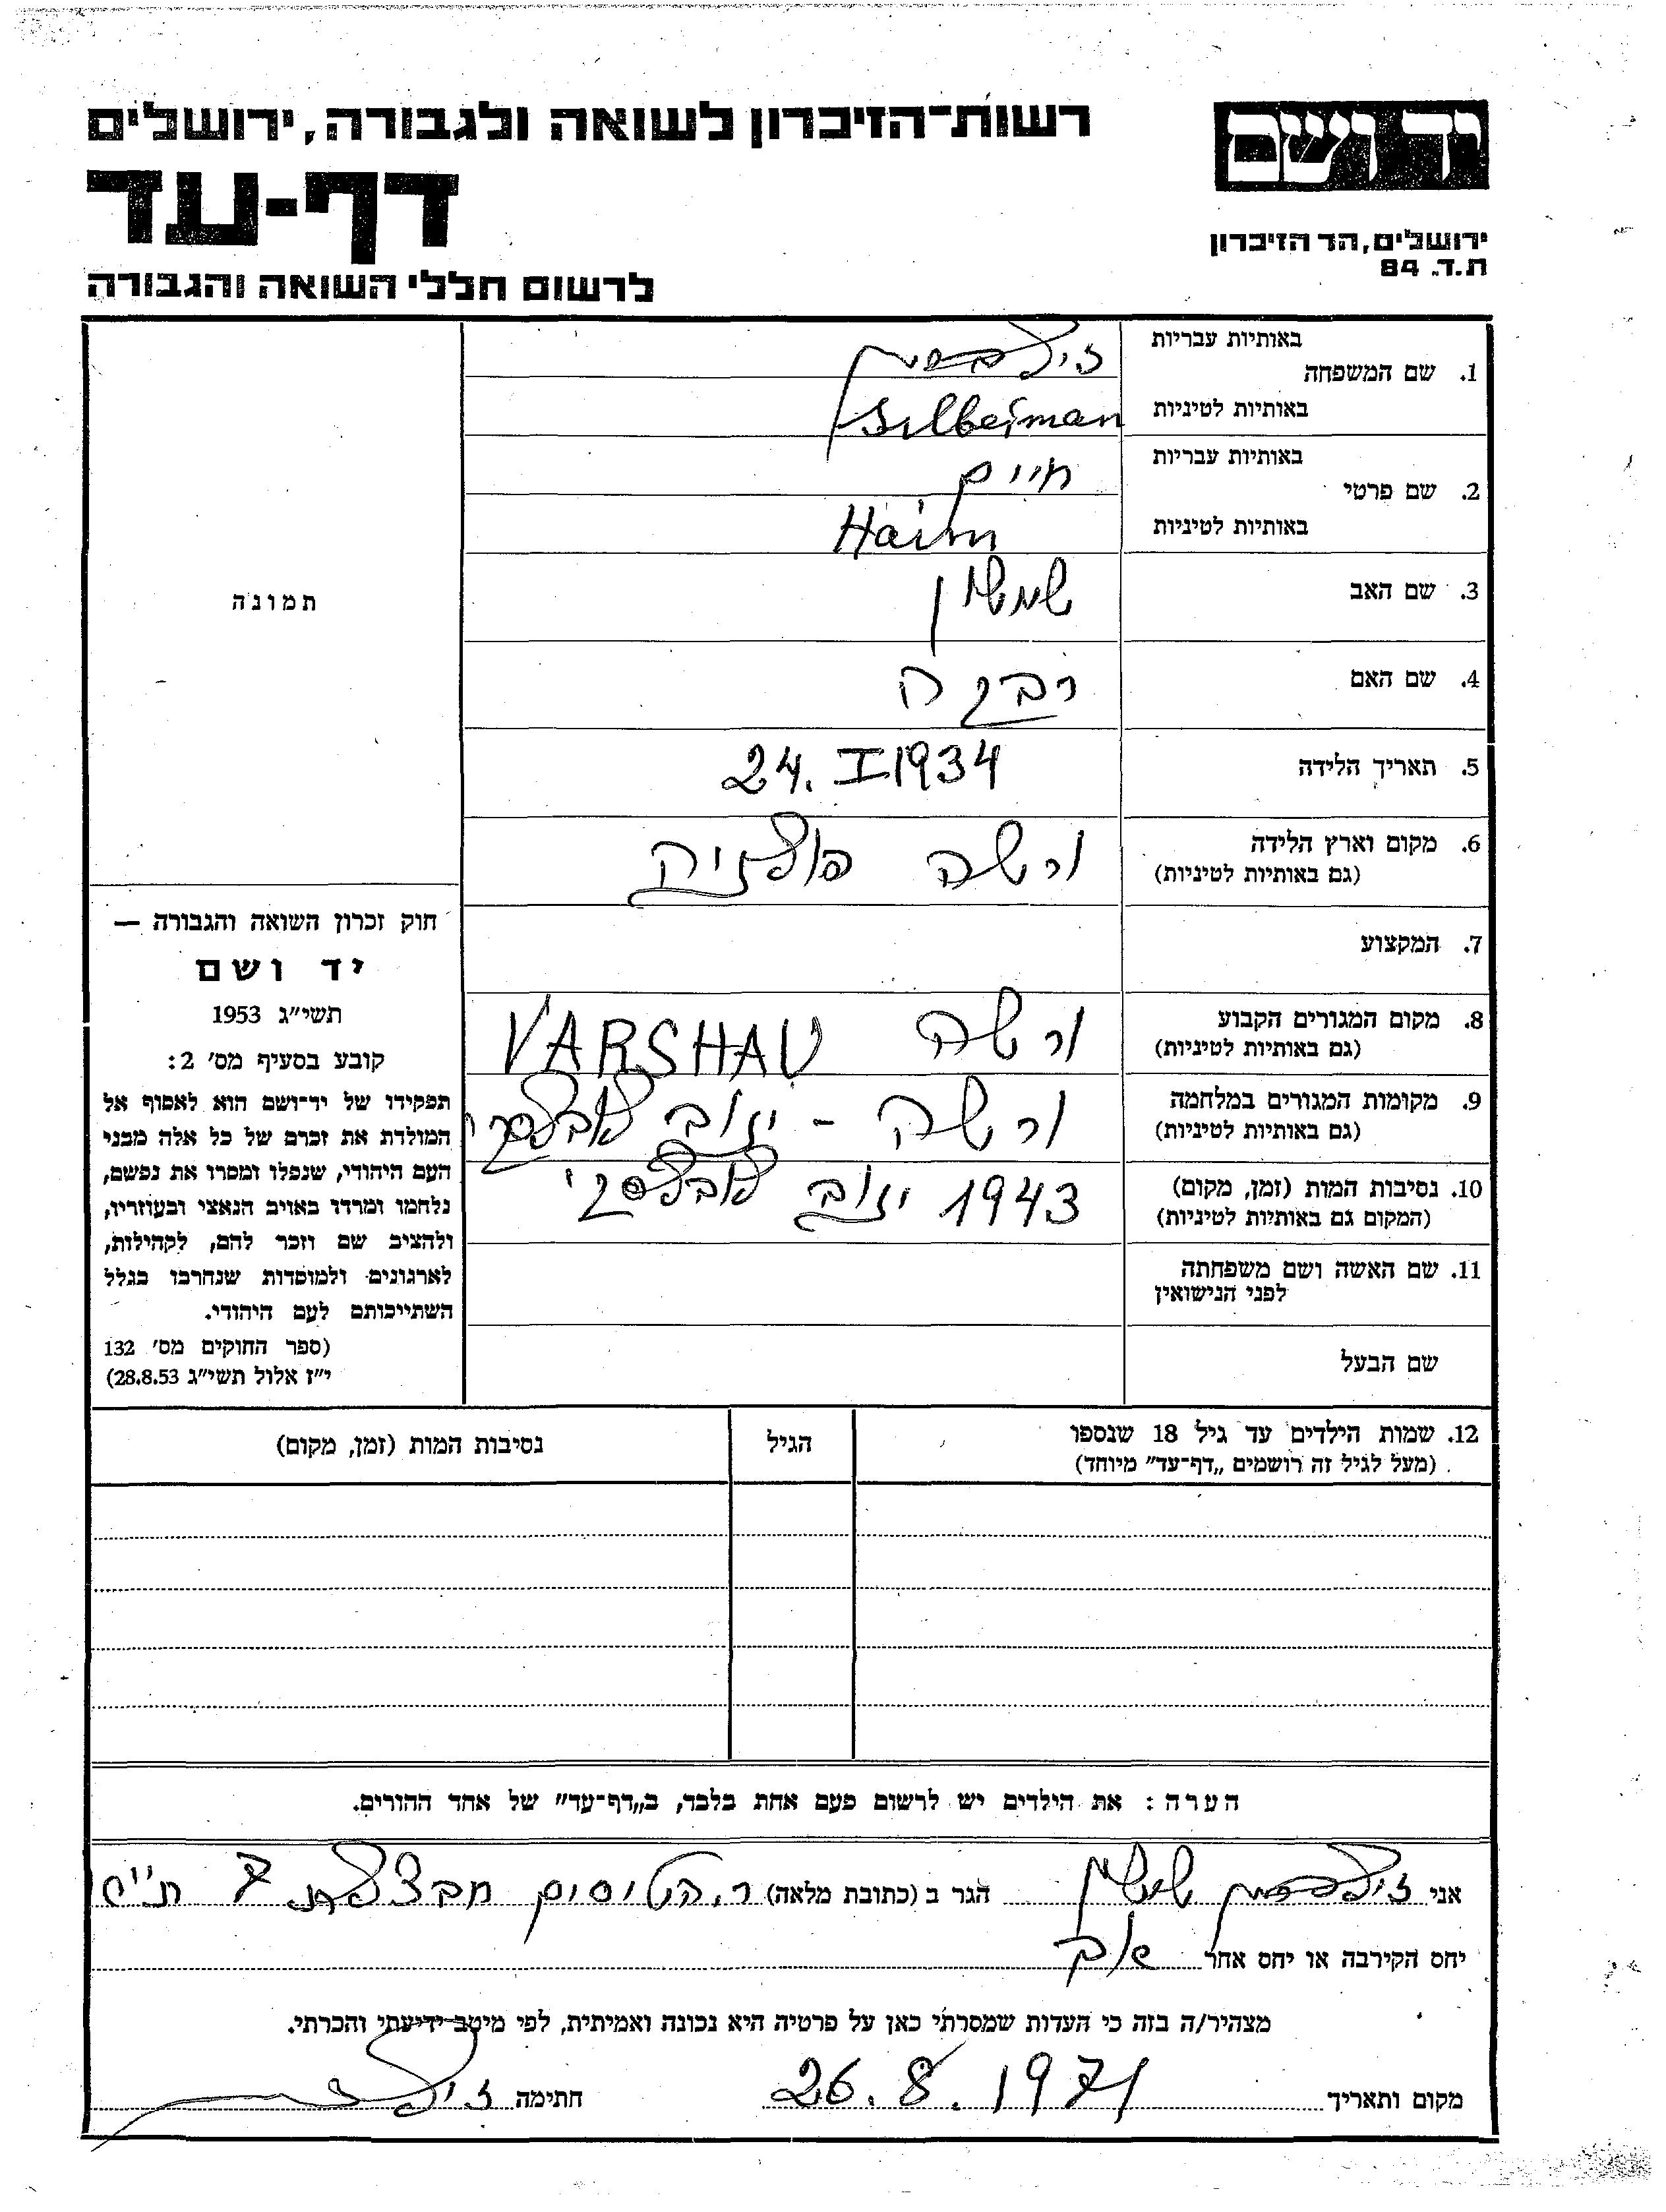 יד ושם
רשות־הזיכרון לשואה ולגבורה, ירושלים
דף-עד
ירושלים, הר הזיכרון
ת.ד. 84
לרשום חללי השואה והגבורה
באותיות עבריות
זילברמן
1. שם המשפחה
באותיות לטיניות
Silberman
באותיות עבריות
חיים
2. שם פרטי
באותיות לטיניות
Haim
3. שם האב
שמשון
4. שם האם
רבקה
5. תאריך הלידה
24. I 1934
6. מקום וארץ הלידה
(גם באותיות לטיניות)
ורשה פולניה
7. המקצוע
8. מקום המגורים הקבוע
(גם באותיות לטיניות)
ורשה VARSHAU
9. מקומות המגורים במלחמה
(גם באותיות לטיניות)
ורשה - ינוב לובלסקי
10. נסיבות המות (זמן, מקום)
(המקום גם באותיות לטיניות)
1943 ינוב לובלסקי
11. שם האשה ושם משפחתה
לפני הנישואין
שם הבעל
תמונה
חוק זכרון השואה והגבורה —
יד ושם
תשי״ג 1953
קובע בסעיף מס׳ 2:
תפקידו של יד־ושם הוא לאסוף אל
המולדת את זכרם של כל אלה מבני
העם היהודי, שנפלו ומסרו את נפשם,
נלחמו ומרדו באויב הנאצי ובעוזריו,
ולהציב שם וזכר להם, לקהילות,
לארגונים ולמוסדות שנחרבו בגלל
השתייכותם לעם היהודי.
(ספר החוקים מס׳ 132
י״ז אלול תשי״ג 28.8.53)
12. שמות הילדים עד גיל 18 שנספו
(מעל לגיל זה רושמים „דף־עד״ מיוחד)
הגיל
נסיבות המות (זמן, מקום)
הערה: את הילדים יש לרשום פעם אחת בלבד, ב„דף־עד״ של אחד ההורים.
אני זילברמן שמשון הגר ב (כתובת מלאה) ר. הטיסים חבצלת 7
יחס הקירבה או יחס אחר אב
מצהיר/ה בזה כי העדות שמסרתי כאן על פרטיה היא נכונה ואמיתית, לפי מיטב ידיעתי והכרתי.
מקום ותאריך 26.8.1971 חתימה